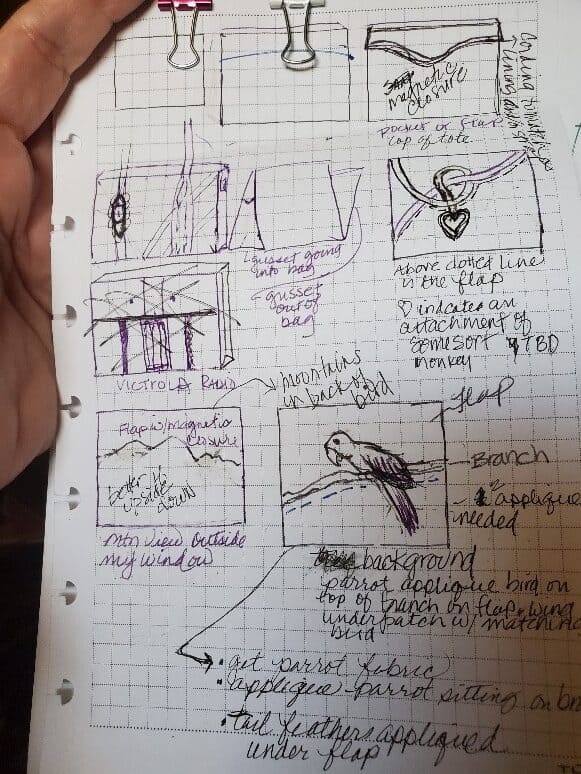 magnetic
closure
Cording to match
lining
pocket or flap
top of tote
gusset going
into bag
gusset
out of
bag
Above dotted line
is the flap
♡ indicates an
attachment of
some sort TBD
monkey
VICTROLA RADIO
mountains
in back of
bird
flap
Flap w/magnetic
closure
better if
upside
down
Branch
applique
needed
mtn view outside
my window
background
parrot applique bird on
top of branch on flap + wing
under patch w/ matching
bird
• get parrot fabric
• applique parrot sitting on
• tail feathers appliqued
under flap